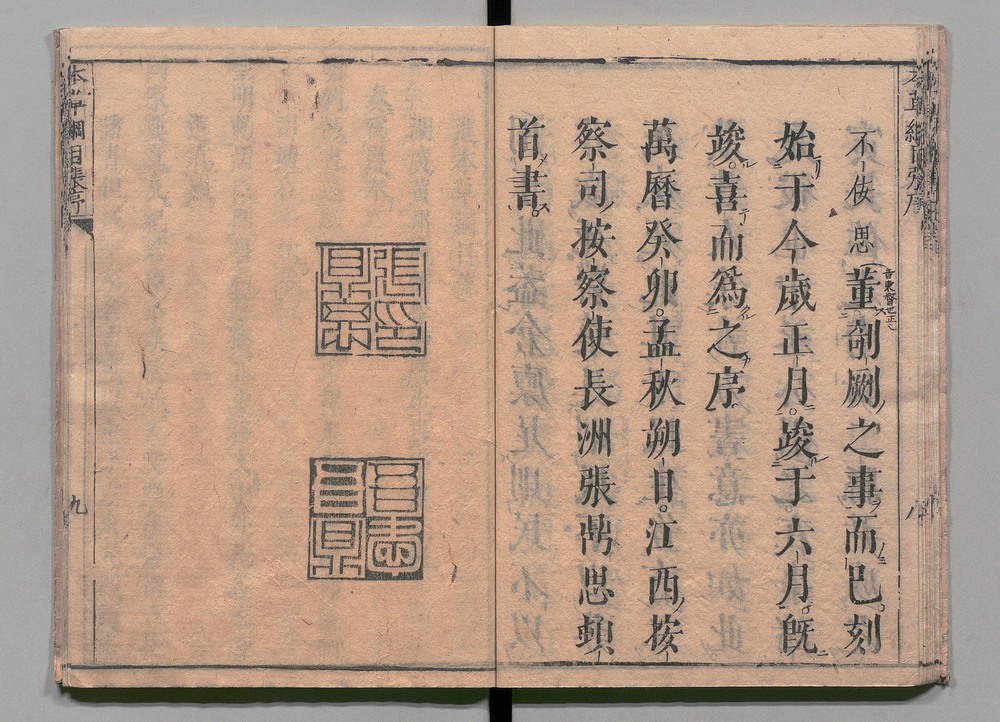 本草綱目張序
八
不佞思董剞劂之事而已。刻
音東督也正也
始于今歲正月。竣于六月。既
竣。喜而爲之序
萬曆癸卯。孟秋朔日。江西按
察司按察使長洲張鼎思頓
首書。
張印鼎思
本草綱目
九